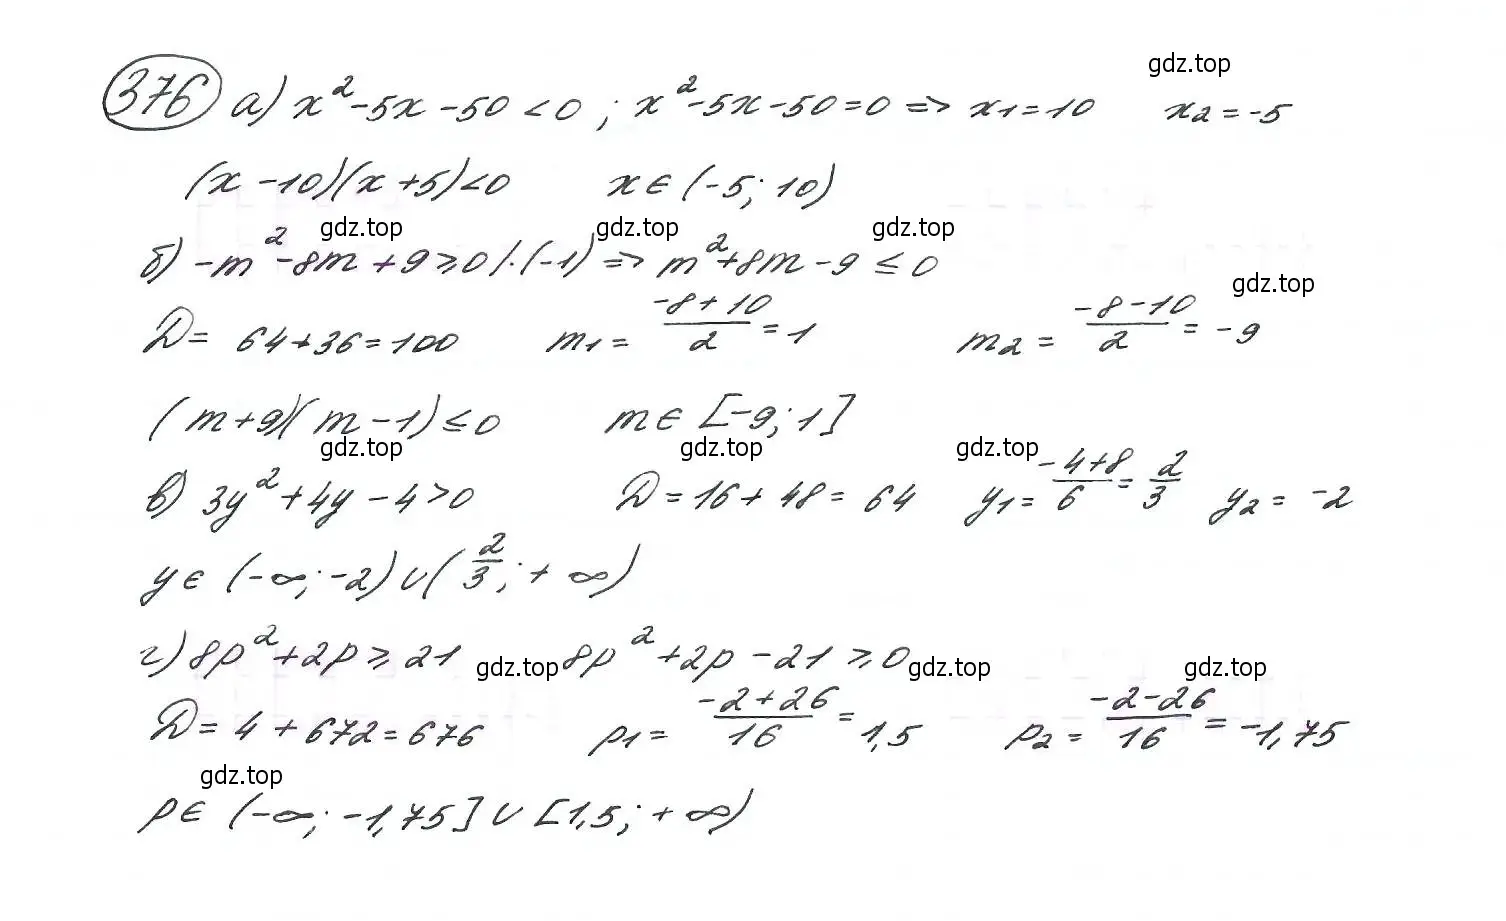 gdz.top
376 а) x² - 5x - 50 < 0 ; x² - 5x - 50 = 0 => x₁ = 10 x₂ = -5
(x - 10)(x + 5) < 0 x ∈ (-5; 10)
gdz.top gdz.top gdz.top
б) -m² - 8m + 9 ≥ 0 /·(-1) => m² + 8m - 9 ≤ 0
gdz.top
Д = 64 + 36 = 100 m₁ = (-8 + 10)/2 = 1 m₂ = (-8 - 10)/2 = -9
(m + 9)(m - 1) ≤ 0 m ∈ [-9; 1]
gdz.top gdz.top gdz.top
в) 3y² + 4y - 4 > 0 Д = 16 + 48 = 64 y₁ = (-4 + 8)/6 = 2/3 y₂ = -2
y ∈ (-∞; -2) ∪ (2/3; +∞)
г) 8p² + 2p ≥ 21 8p² + 2p - 21 ≥ 0
gdz.top gdz.top gdz.top
Д = 4 + 672 = 676 p₁ = (-2 + 26)/16 = 1,5 p₂ = (-2 - 26)/16 = -1,75
gdz.top
p ∈ (-∞; -1,75] ∪ [1,5; +∞)